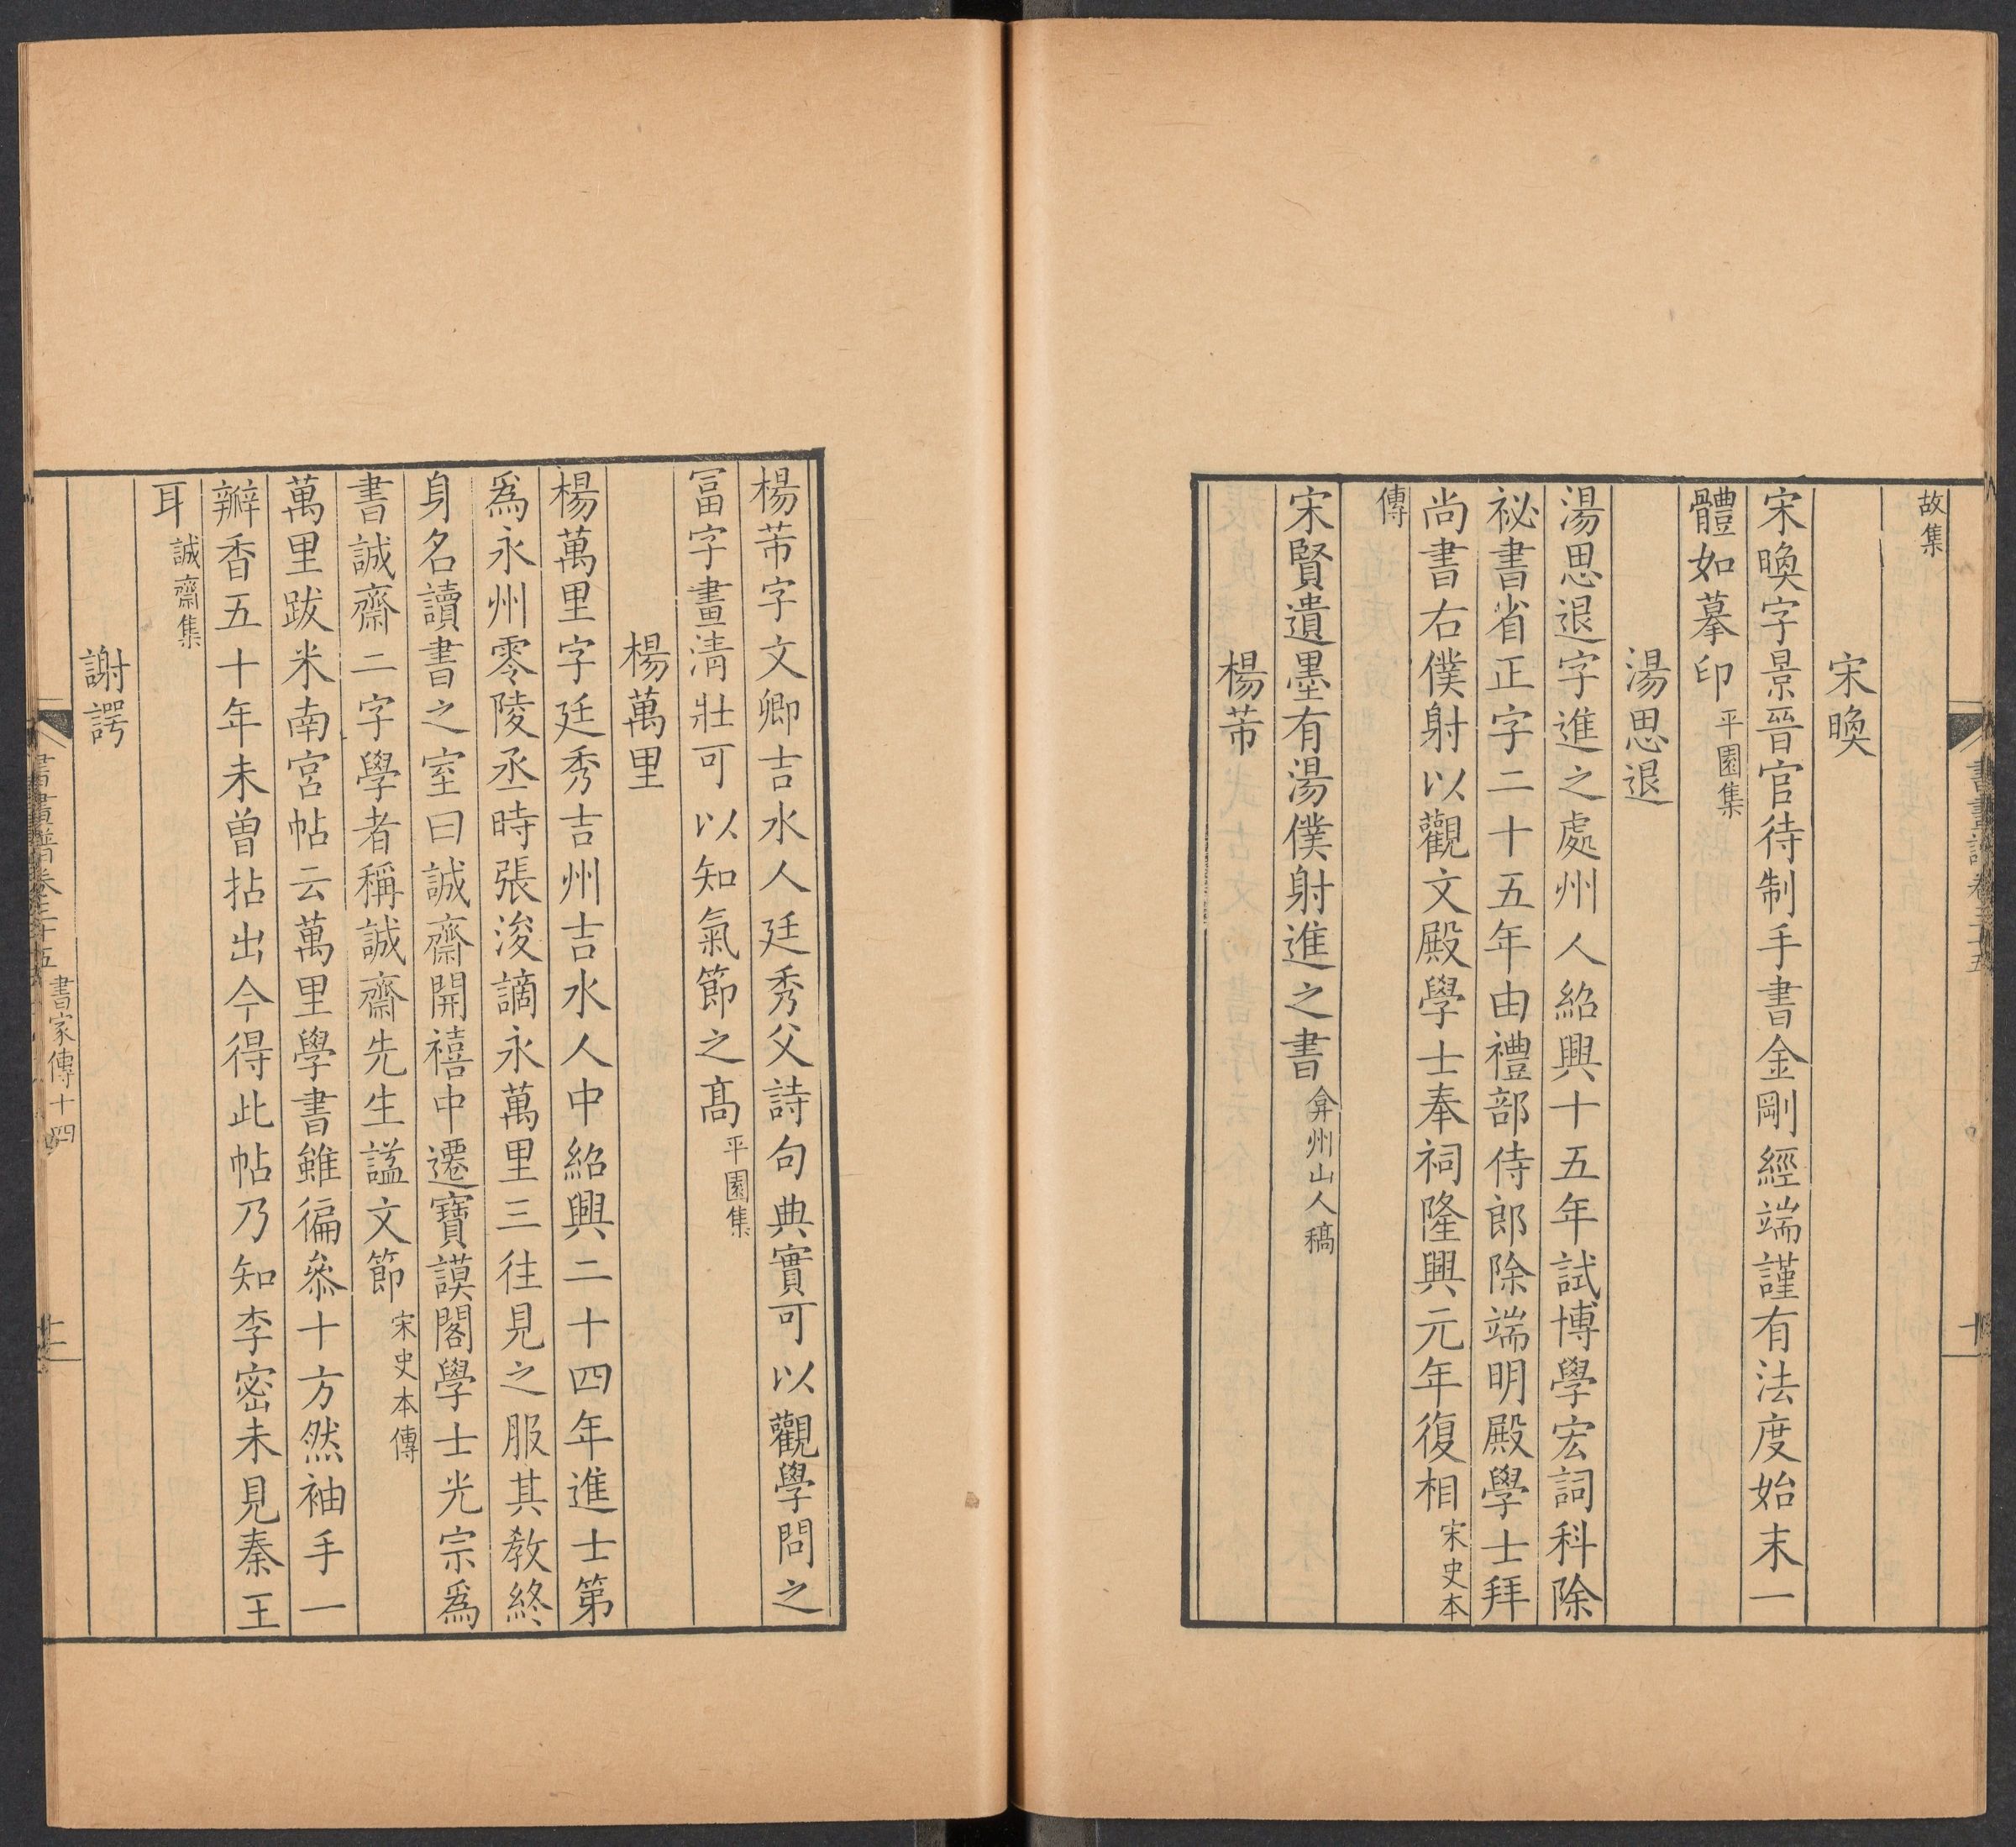 故集
宋㬇
宋㬇字景晉官待制手書金剛經端謹有法度始末一
體如摹印平園集
湯思退
湯思退字進之處州人紹興十五年試博學宏詞科除
祕書省正字二十五年由禮部侍郎除端明殿學士拜
尚書右僕射以觀文殿學士奉祠隆興元年復相宋史本
傳
宋賢遺墨有湯僕射進之書弇州山人稿
楊芾
楊芾字文卿吉水人廷秀父詩句典實可以觀學問之
富字畫清壯可以知氣節之高平園集
楊萬里
楊萬里字廷秀吉州吉水人中紹興二十四年進士第
爲永州零陵丞時張浚謫永萬里三往見之服其教終
身名讀書之室曰誠齋開禧中遷寶謨閣學士光宗爲
書誠齋二字學者稱誠齋先生諡文節宋史本傳
萬里跋米南宮帖云萬里學書雖徧叅十方然袖手一
瓣香五十年未曾拈出今得此帖乃知李密未見秦王
耳誠齋集
謝諤
書畫譜卷三十五 書家傳十四